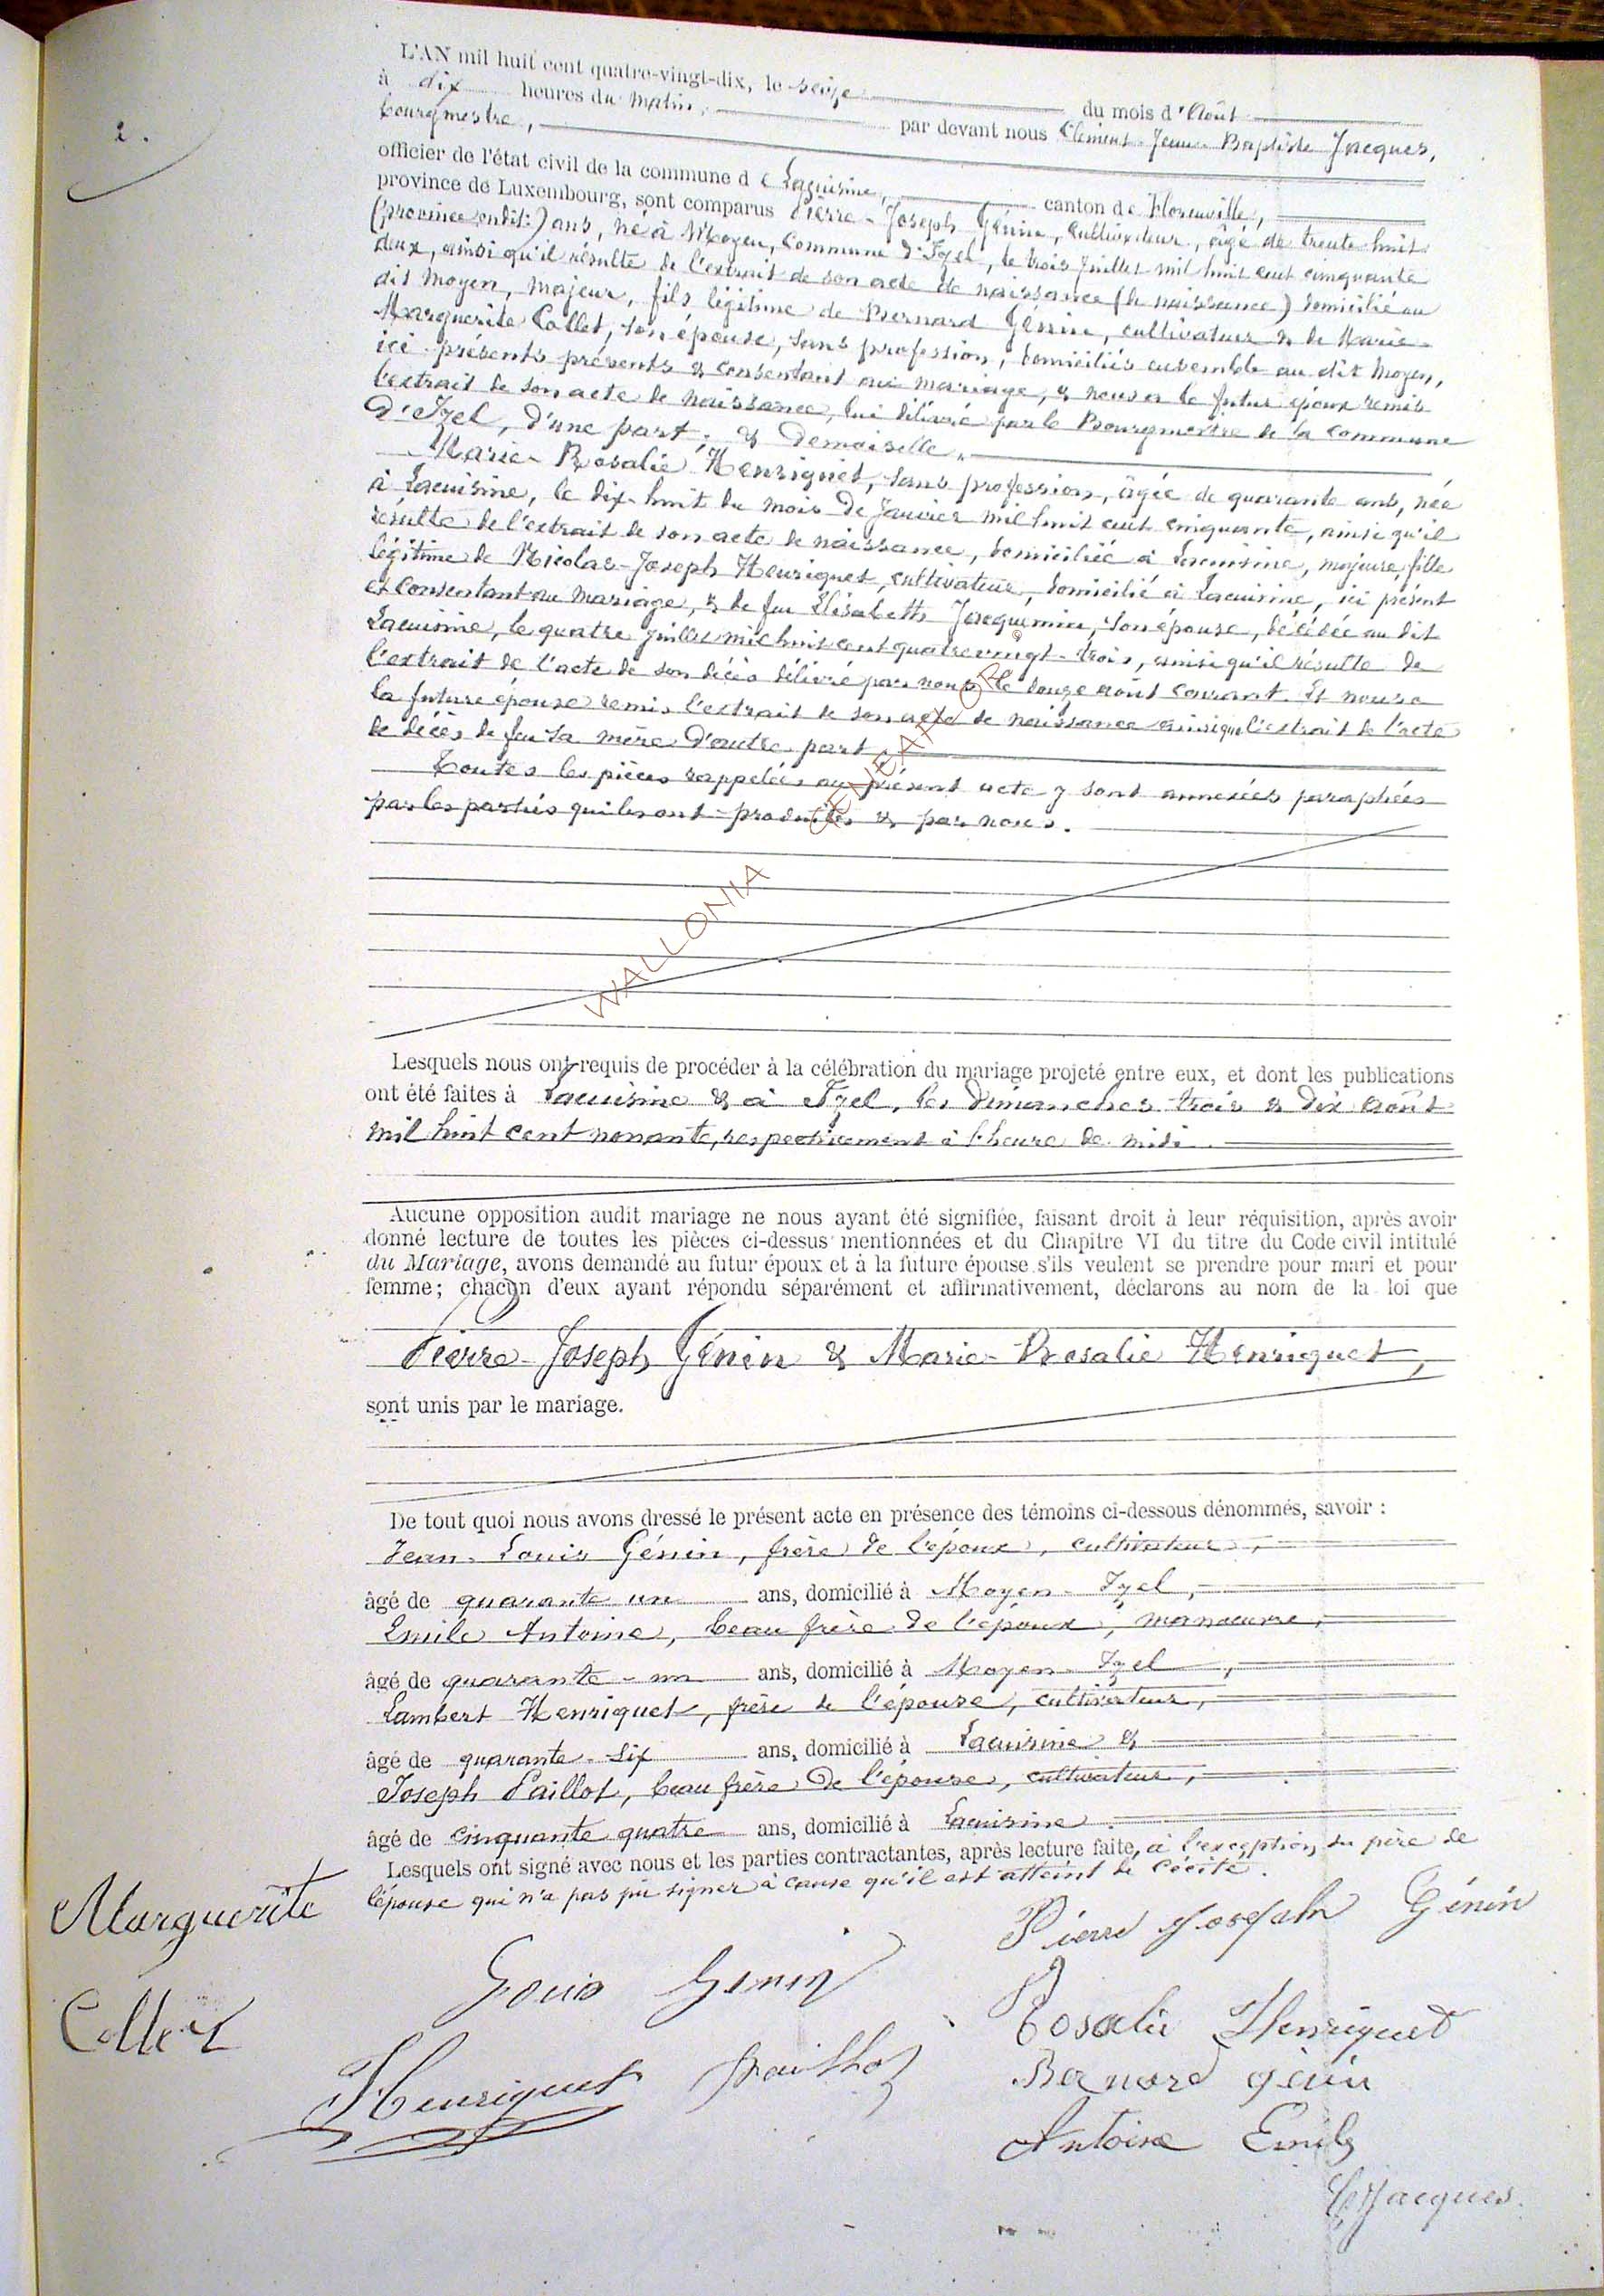 2.
L'AN mil huit cent quatre-vingt-dix, le seize du mois d'Août
à dix heures du matin, par devant nous Clément-Jean-Baptiste Jacques,
bourgmestre,
officier de l'état civil de la commune de Lacuisine, canton de Florenville,
province de Luxembourg, sont comparus Pierre-Joseph Génin, cultivateur, âgé de trente-huit
(province ) ans, né à Moyen, commune d'Izel, le trois juillet mil huit cent cinquante
deux, ainsi qu'il résulte de l'extrait de son acte de naissance (de naissance) domicilié au
dit Moyen, majeur, fils légitime de Bernard Génin, cultivateur & de Marie-
Marguerite Collet, son épouse, sans profession, domiciliés ensemble au dit Moyen,
ici présents présents & consentant au mariage, & nous a le futur époux remis
l'extrait de son acte de naissance, lui délivré par le Bourgmestre de la commune
d'Izel, d'une part. & Demoiselle
Marie-Rosalie Henriquet, sans profession, âgée de quarante ans, née
à Lacuisine, le dix-huit du mois de Janvier mil huit cent cinquante, ainsi qu'il
résulte de l'extrait de son acte de naissance, domiciliée à Lacuisine, majeure, fille
légitime de Nicolas-Joseph Henriquet, cultivateur, domicilié à Lacuisine, ici présent
et consentant au mariage, & de feu Elisabeth Jacquemin, son épouse, décédée au dit
Lacuisine, le quatre juillet mil huit cent quatrevingt-trois, ainsi qu'il résulte de
l'extrait de l'acte de son décès délivré par nous le douze août courant. Et nous a
la future épouse remis l'extrait de son acte de naissance ainsi que l'extrait de l'acte
de décès de feu sa mère d'autre part
Toutes les pièces rappelées au présent acte y sont annexées paraphées
par les parties qui les ont produites & par nous.
WALLONIA GENEAH OR
Lesquels nous ont requis de procéder à la célébration du mariage projeté entre eux, et dont les publications
ont été faites à Lacuisine & à Izel, les Dimanches trois & dix Août
mil huit cent nonante, respectivement à l'heure de midi.
Aucune opposition audit mariage ne nous ayant été signifiée, faisant droit à leur réquisition, après avoir
donné lecture de toutes les pièces ci-dessus mentionnées et du Chapitre VI du titre du Code civil intitulé
du Mariage, avons demandé au futur époux et à la future épouse s'ils veulent se prendre pour mari et pour
femme; chacun d'eux ayant répondu séparément et affirmativement, déclarons au nom de la loi que
Pierre-Joseph Génin & Marie-Rosalie Henriquet,
sont unis par le mariage.
De tout quoi nous avons dressé le présent acte en présence des témoins ci-dessous dénommés, savoir :
Jean-Louis Génin, frère de l'époux, cultivateur,
âgé de quarante un ans, domicilié à Moyen-Izel,
Emile Antoine, beau frère de l'époux, manoeuvre,
âgé de quarante-un ans, domicilié à Moyen-Izel,
Lambert Henriquet, frère de l'épouse, cultivateur,
âgé de quarante-six ans, domicilié à Lacuisine &
Joseph Paillot, beau frère de l'épouse, cultivateur,
âgé de cinquante quatre ans, domicilié à Lacuisine.
Lesquels ont signé avec nous et les parties contractantes, après lecture faite, à l'exception du père de
l'épouse qui n'a pas pu signer à cause qu'il est atteint de cécité.
Marguerite
Collet
Pierre Joseph Génin
Louis Genin
Rosalie Henriquet
Henriquet Paillot
Bernard génin
Antoine Emile
CJacques.